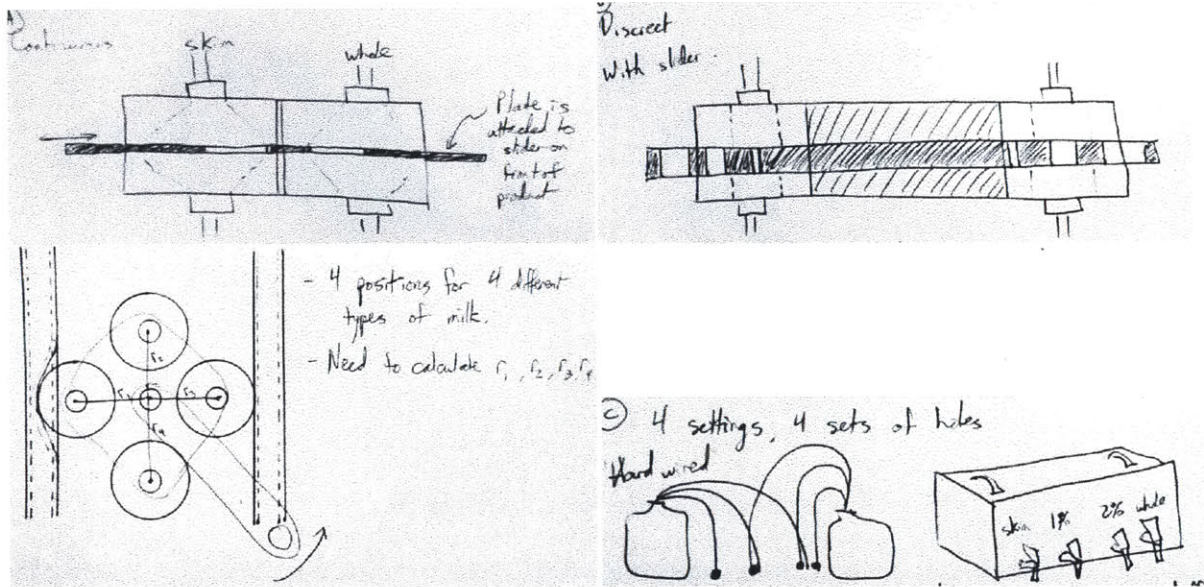 A)
Continuous
skim
whole
Plate is
attached to
slider on
front of
product
Discreet
With slider.
- 4 positions for 4 different
types of milk.
- Need to calculate r1, r2, r3, r4
r2
r3
r4
C 4 settings, 4 sets of holes
Hard wired
skim 1% 2% whole